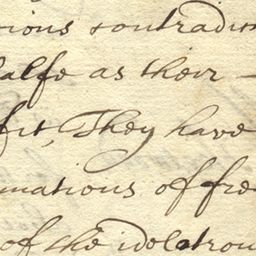 ious contradic
halfe as their -
fit, They have
mations of fre
of the idolatrou